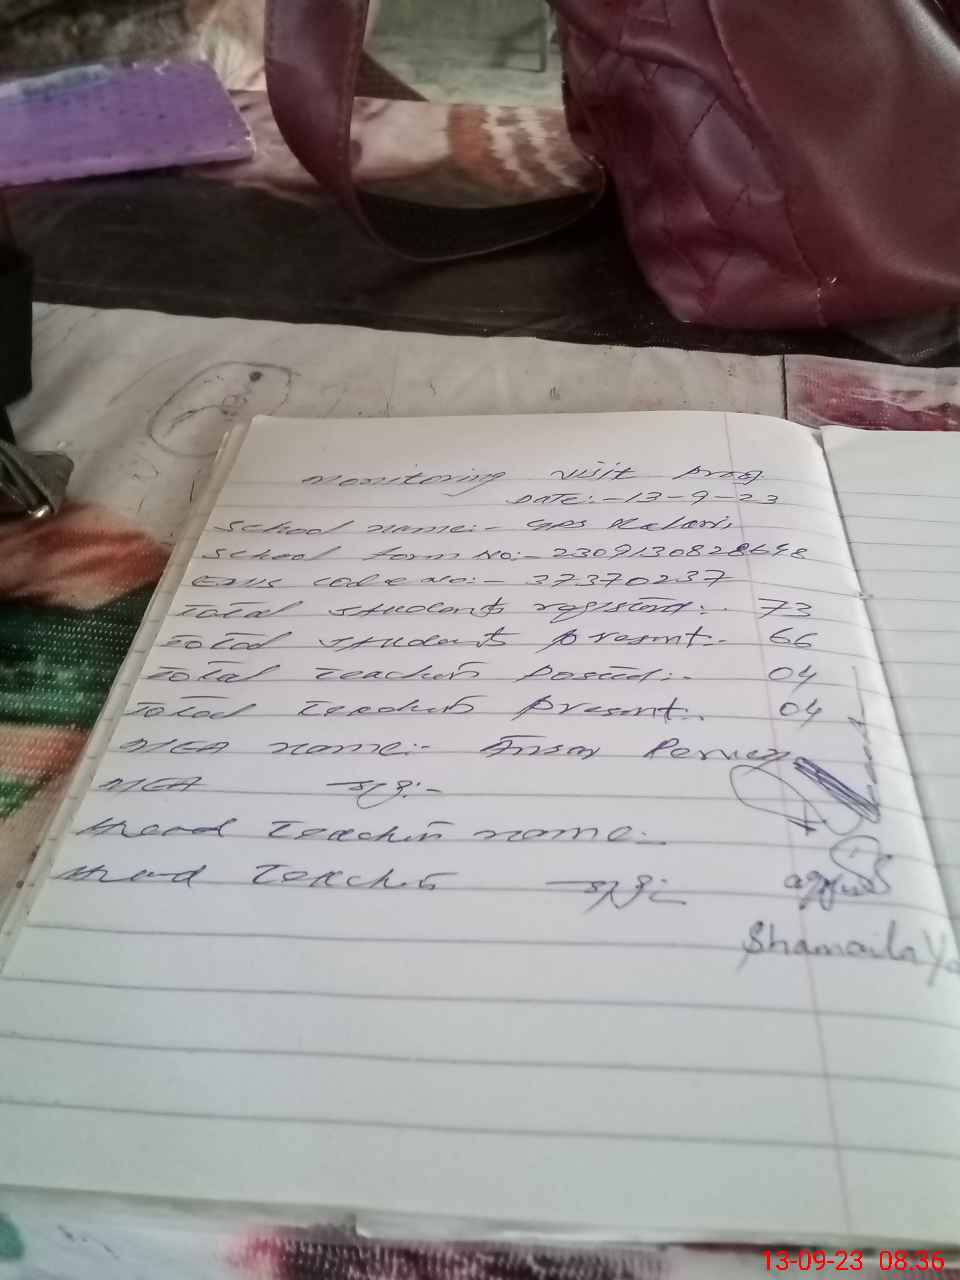 Monitoring visit proof
DATE:-13-9-23
School name:- GPS Kalari
School form No:- 2309130828698
EMIS code No:- 37370237
Total students registerd:- 73
Total students present:- 66
Total Teachers Posted:- 04
Total Teachers Present:- 04
MEA name:- Ansar Pervez
MEA Sig:-
Head Teacher name:-
Head Teacher Sig:-
Shamaila
13-09-23 08:36